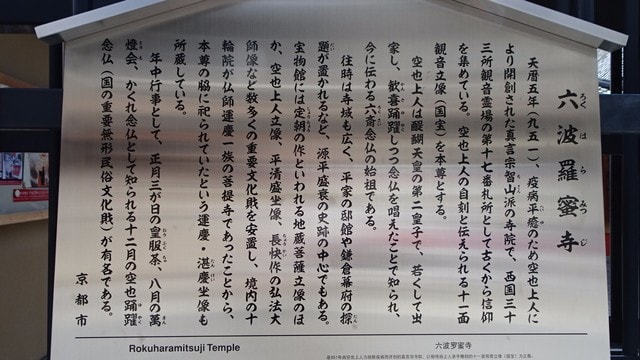 六波羅蜜寺
ろくはらみつじ
天暦五年（九五一）、疫病平癒のため空也上人に
より開創された真言宗智山派の寺院で、西国三十
三所観音霊場の第十七番札所として古くから信仰
を集めている。空也上人の自刻と伝えられる十一面
観音立像（国宝）を本尊とする。
空也上人は醍醐天皇の第二皇子で、若くして出
家し、歓喜踊躍しつつ念仏を唱えたことで知られ、
今に伝わる六斎念仏の始祖である。
往時は寺域も広く、平家の邸館や鎌倉幕府の探
題が置かれるなど、源平盛衰の史跡の中心でもある。
宝物館には定朝の作といわれる地蔵菩薩立像のほ
か、空也上人立像、平清盛坐像、長快作の弘法大
師像など数多くの重要文化財を安置し、境内の十
輪院が仏師運慶一族の菩提寺であったことから、
本尊の脇に祀られていたという運慶・湛慶坐像も
所蔵している。
年中行事として、正月三が日の皇服茶、八月の萬
燈会、かくれ念仏として知られる十二月の空也踊躍
念仏（国の重要無形民俗文化財）が有名である。
京都市
Rokuharamitsuji Temple
六波罗蜜寺